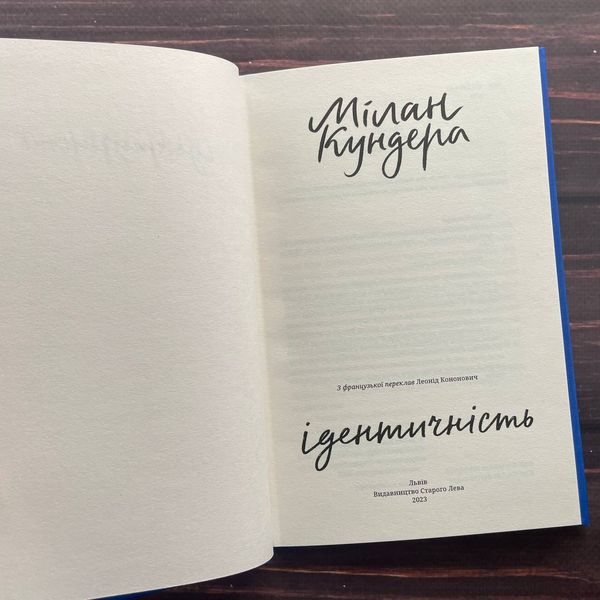 Мілан
Кундера
З французької переклав Леонід Кононович
ідентичність
Львів
Видавництво Старого Лева
2023